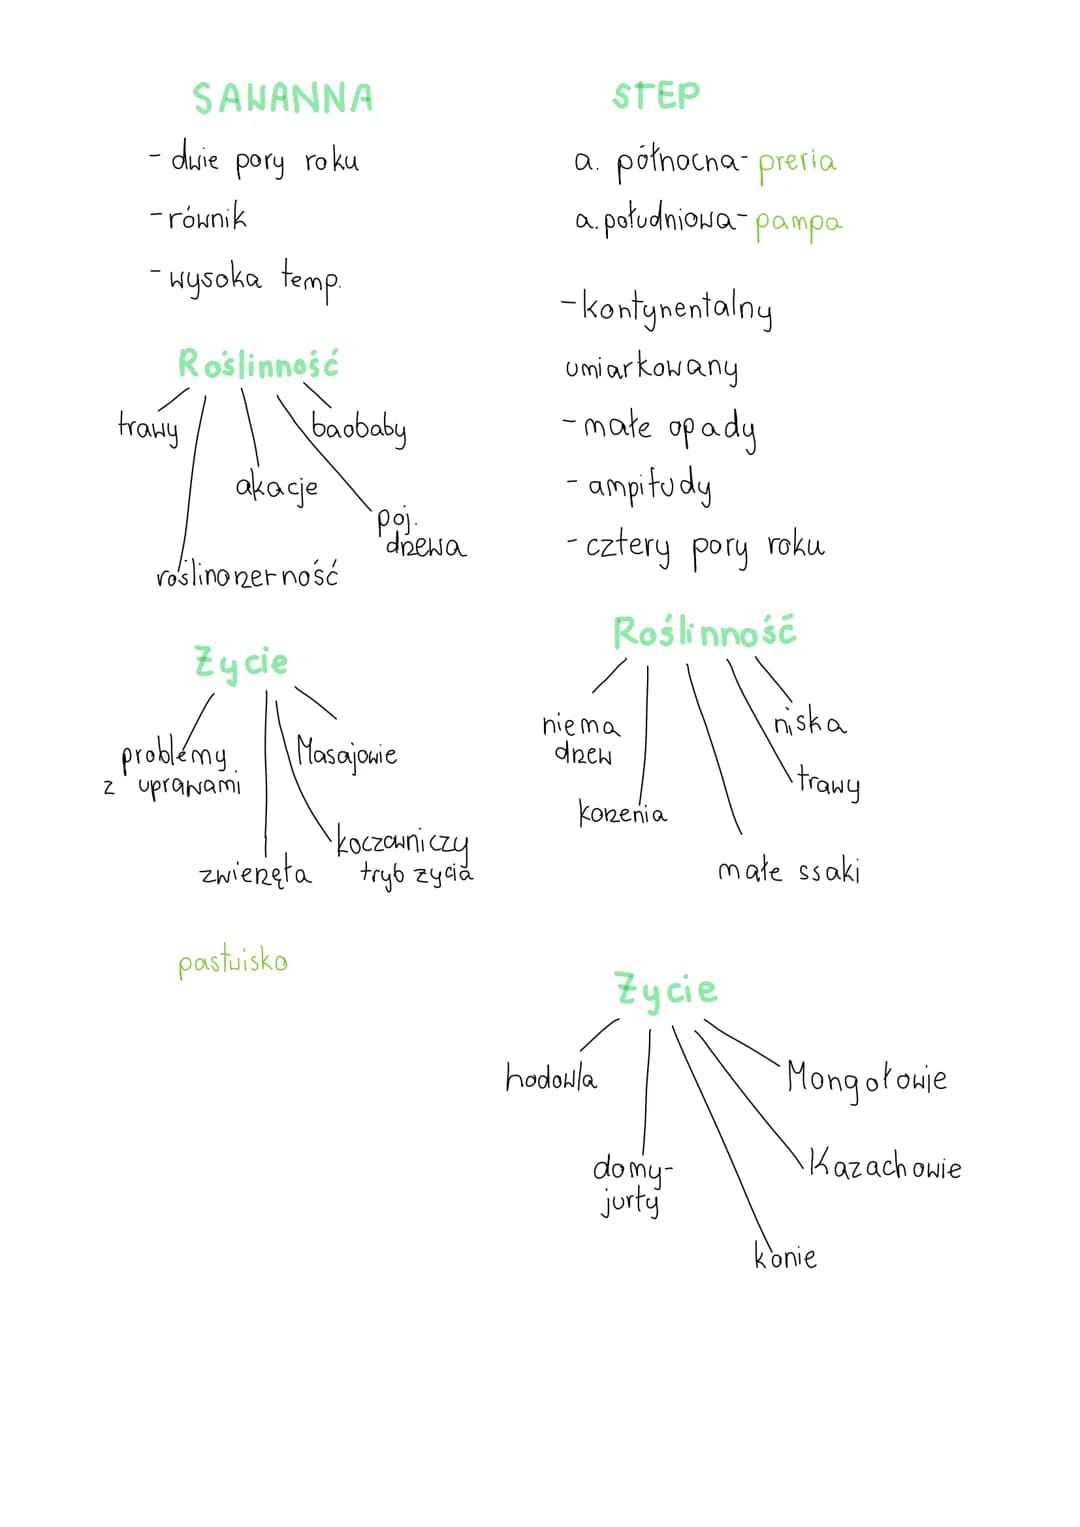 SAWANNA
- dwie pory roku
- równik
- wysoka temp.
Roślinność
trawy
baobaby
akacje
poj.
drzewa
roślinożerność
Życie
problemy
z uprawami
Masajowie
koczowniczy
tryb życia
zwierzęta
pastwisko
STEP
a. północna- preria
a. południowa- pampa
- kontynentalny
umiarkowany
- małe opady
- ampitudy
- cztery pory roku
Roślinność
nie ma
drzew
niska
trawy
korzenia
małe ssaki
Życie
hodowla
Mongołowie
domy-
jurty
Kazachowie
konie